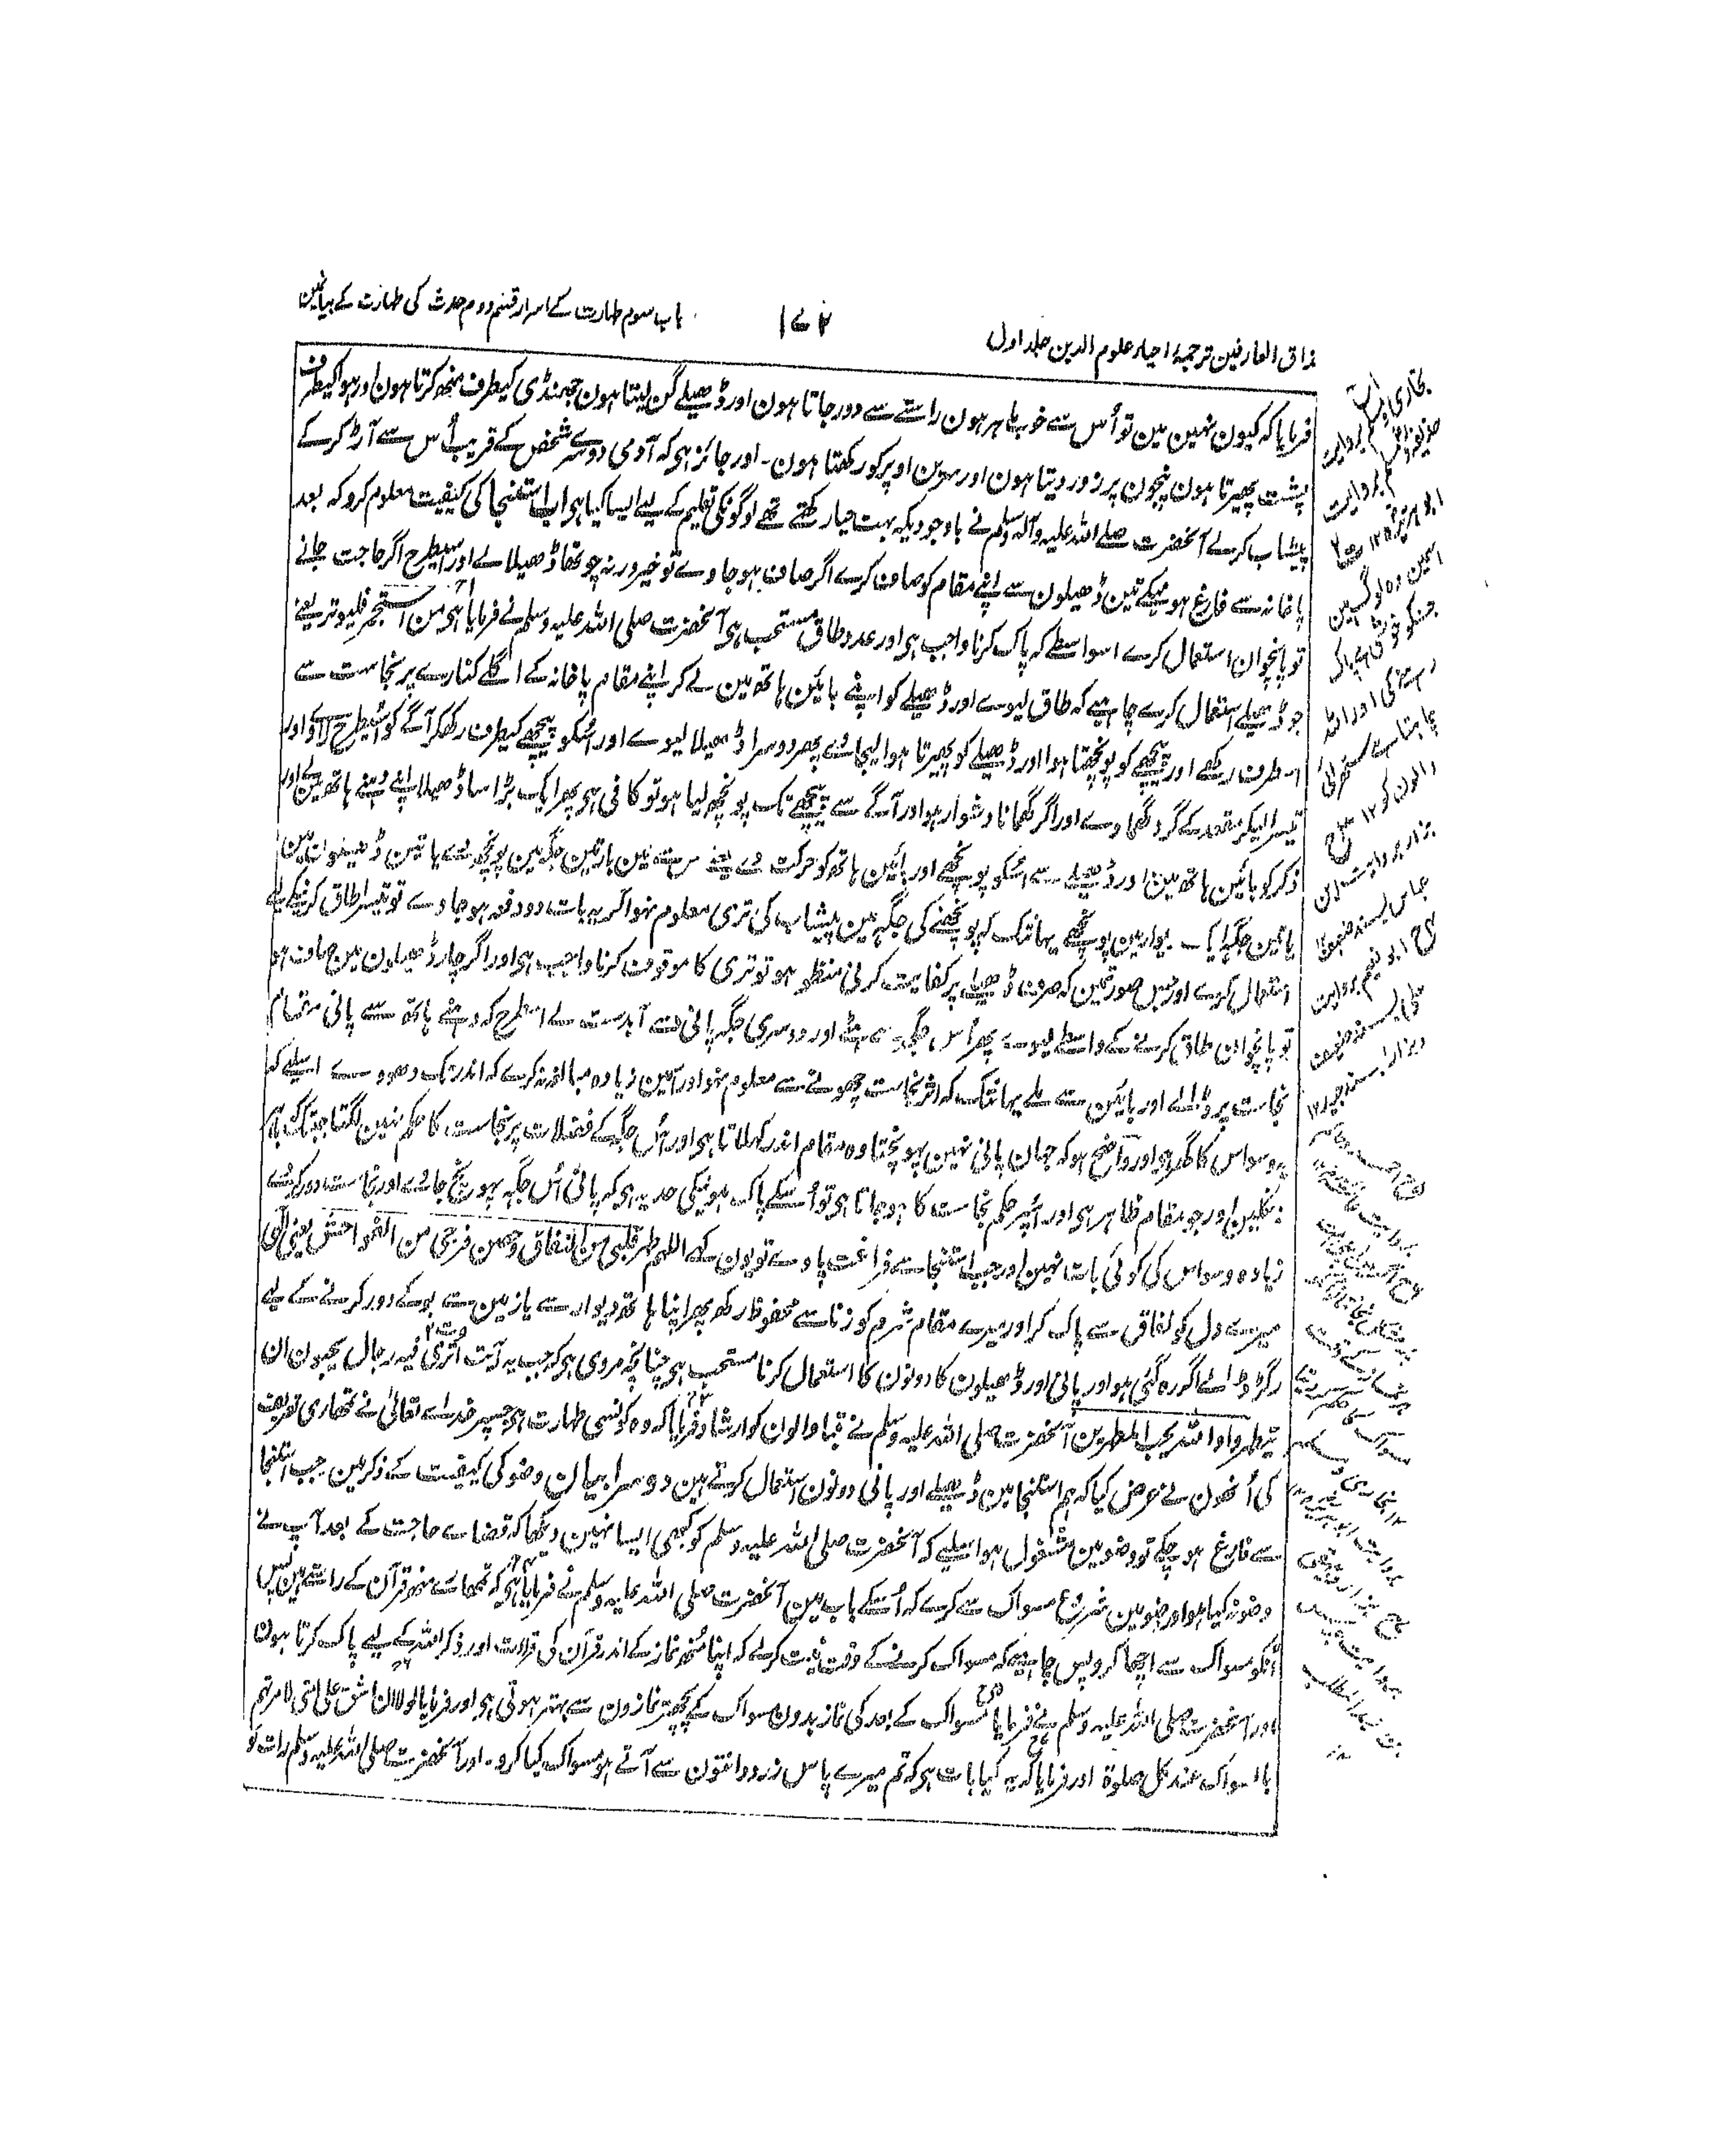 مذاق العارفین ترجمۂ احیاء علوم الدین جلد اول
۱۷۲
باب سوم طہارت کے اسرار قسم دوم حدث کی طہارت کے بیانمین
فرمایا کہ کیون نہین مین تو اُس سے خوب ماہر ہون راستے سے دور جاتا ہون اور ڈھیلے گن لیتا ہون جھنڈی کیطرف منھ کرتا ہون اور ہوا کیطرف
پشت پھیرتا ہون پنجون پر زور دیتا ہون اور سرین اوپر کو رکھتا ہون۔ اور جائز ہی کہ آدمی دوسرے شخص کے قریب اُس سے آڑ کر کے
پیشاب کرلے آنحضرت صلے اللہ علیہ وآلہ وسلم نے باوجودیکہ بہت حیا رکھتے تھے لوگونکی تعلیم کے لیے ایسا کیا ہی اب استنجا کی کیفیت معلوم کرو کہ بعد
پاخانہ سے فارغ ہو چکے تین ڈھیلون سے اپنے مقام کو صاف کرے اگر صاف ہو جاوے تو خیر ورنہ چوتھا ڈھیلا لے اور اسیطرح اگر حاجت جانے
تو پانچوان استعمال کرے اسواسطے کہ پاک کرنا واجب ہی اور عدد طاق مستحب ہی آنحضرت صلی اللہ علیہ وسلم نے فرمایا ہی من استجمر فلیوتر یعنے
جو ڈھیلے استعمال کرے چاہیے کہ طاق لیوے اور ڈھیلے کو اپنے بائین ہاتھ مین لے کر اپنے مقام پاخانہ کے اگلے کنارے پر نجاست سے
اسطرف رکھے اور پیچھے کو پونچھتا ہوا اور ڈھیلے کو پھیرتا ہوا لیجائے پھر دوسرا ڈھیلا لیوے اور اُسکو پیچھے کیطرف رکھکر آگے کو اسیطرح لاوے اور
تیسرا لیکر مقعد کے گرد گھماوے اور اگر گھمانا دشوار ہو اور آگے سے پیچھے تک پونچھ لیا ہو تو کافی ہی پھر ایک بڑا سا ڈھیلا اپنے دہنے ہاتھ مین لے اور
ذکر کو بائین ہاتھ مین اور ڈھیلے سے اُسکو پونچھے اور بائین ہاتھ کو حرکت دے یعنے تین بار تین جگہ مین پونچھ دے یا تین ڈھیلون مین
یا تین جگہ ایک دیوار مین پونچھے یہانتک کہ پونچھنے کی جگہ مین پیشاب کی تری معلوم نہو اگر یہ بات دو دفعہ ہو جاوے تو تیسرا طاق کرنیکے لیے
استعمال کرے اور جس صورتمین کہ صرف ڈھیلے پر کفایت کرنی منظور ہو تو تری کا موقوف کرنا واجب ہی اور اگر چار ڈھیلون مین صاف ہو
تو پانچوان طاق کرنے کے واسطے لیوے پھر اُس جگہ سے ہٹے اور دوسری جگہ پانی سے آبدست لے اسطرح کہ دہنے ہاتھ سے پانی مقام
نجاست پر ڈالے اور بائین سے ملے یہانتک کہ اثر نجاست چھونے سے معلوم نہو اور اسمین زیادہ مبالغہ نہ کرے کہ اندر تک دھووے اسلیے کہ
یہ وسواس کا گھر ہی اور واضح ہو کہ جہان پانی نہین پہونچتا وہ مقام اندر کہلاتا ہی اور اُس جگہ کے فضلات پر نجاست کا حکم نہین لگتا جبتک باہر
نہ نکلین اور جو مقام ظاہر ہی اور اُسپر حکم نجاست کا ہو جاتا ہی تو اُسکے پاک ہونیکی حد یہ ہی کہ پانی اُس جگہ پہونچ جائے اور نجاست دور کر دے
زیادہ وسواس کی کوئی بات نہین اور جب استنجا سے فراغت پاوے تو یون کہے اللہم طہر قلبی من النفاق وحصن فرجی من الفواحش یعنی الٰہی
میرے دل کو نفاق سے پاک کر اور میرے مقام شرم کو زنا سے محفوظ رکھ پھر اپنا ہاتھ دیوار سے یا زمین سے بو کے دور کرنے کے لیے
رگڑ ڈالے اگر رہ گئی ہو اور پانی اور ڈھیلون کا دونون کا استعمال کرنا مستحب ہی چنانچہ مروی ہی کہ جب یہ آیت اتری فیہ رجال یحبون ان
یتطہروا واللہ یحب المطہرین آنحضرت صلی اللہ علیہ وسلم نے قبا والون کو ارشاد فرمایا کہ وہ کونسی طہارت ہی جسپر خداے تعالیٰ نے تمہاری تعریف
کی اُنھون نے عرض کیا کہ ہم استنجا مین ڈھیلے اور پانی دونون استعمال کرتے ہین دوسرا بیان وضو کی کیفیت کے ذکر مین جب استنجا
سے فارغ ہو چکے تو وضو مین مشغول ہو اسلیے کہ آنحضرت صلی اللہ علیہ وسلم کو کبھی ایسا نہین دیکھا کہ قضاے حاجت کے بعد آپ نے
وضو نہ کیا ہو اور وضو مین شروع مسواک سے کرے کہ اُسکے باب مین آنحضرت صلی اللہ علیہ وسلم نے فرمایا ہی کہ تمھارے منھ قرآن کے راستے ہین پس
اُنکو مسواک سے اچھا کرو پس چاہیے کہ مسواک کرنے کے وقت نیت کرلے کہ اپنا منھ نماز کے اندر قرآن کی قراءت اور ذکر اللہ کے لیے پاک کرتا ہون
اور آنحضرت صلی اللہ علیہ وسلم نے فرمایا مسواک کے بعد کی نماز بدون مسواک کے پچھتر نمازون سے بہتر ہوتی ہی اور فرمایا لولا ان اشق علی امتی لامرتہم
بالسواک عند کل صلوٰۃ اور فرمایا کہ یہ کیا بات ہی کہ تم میرے پاس زرد دانتون سے آتے ہو مسواک کیا کرو۔ اور آنحضرت صلی اللہ علیہ وسلم رات کو
اسمین وہ لوگ ہین
جنکو خوشی ہی پاک
رہنے کی اور اللہ
چاہتا ہے ستھرائی
والون کو ۱۲
بزار بروایت ابن
عباس بسند ضعیف
ابو نعیم بروایت
علی بسند ضعیف